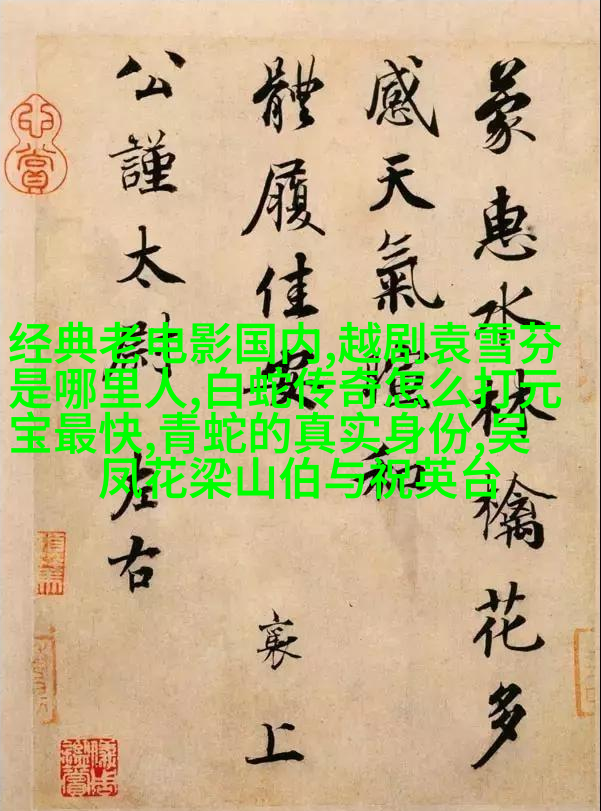 蒙惠水林檎花多
感天氣和
體履佳安
襄上
公謹太尉左右
经典老电影国内,越剧袁雪芬
是哪里人,白蛇传奇怎么打元
宝最快,青蛇的真实身份,吴
凤花梁山伯与祝英台